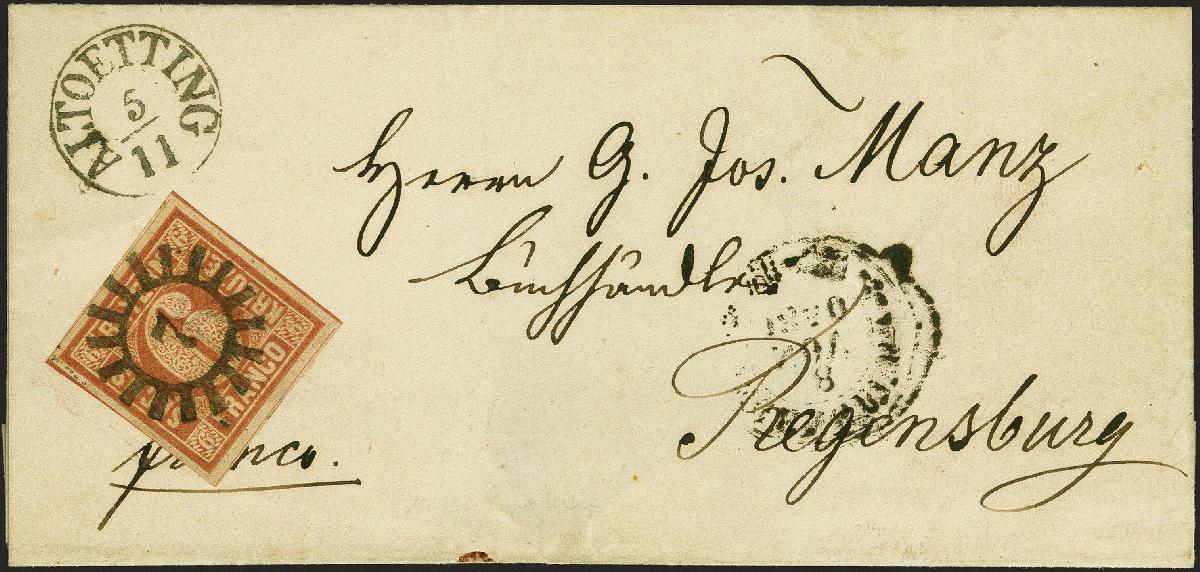 ALTOETTING
5
11
Herrn G. Jos. Manz
Buchhändler
Regensburg
7
SECHS
KREUZER
FRANCO
6
franco.